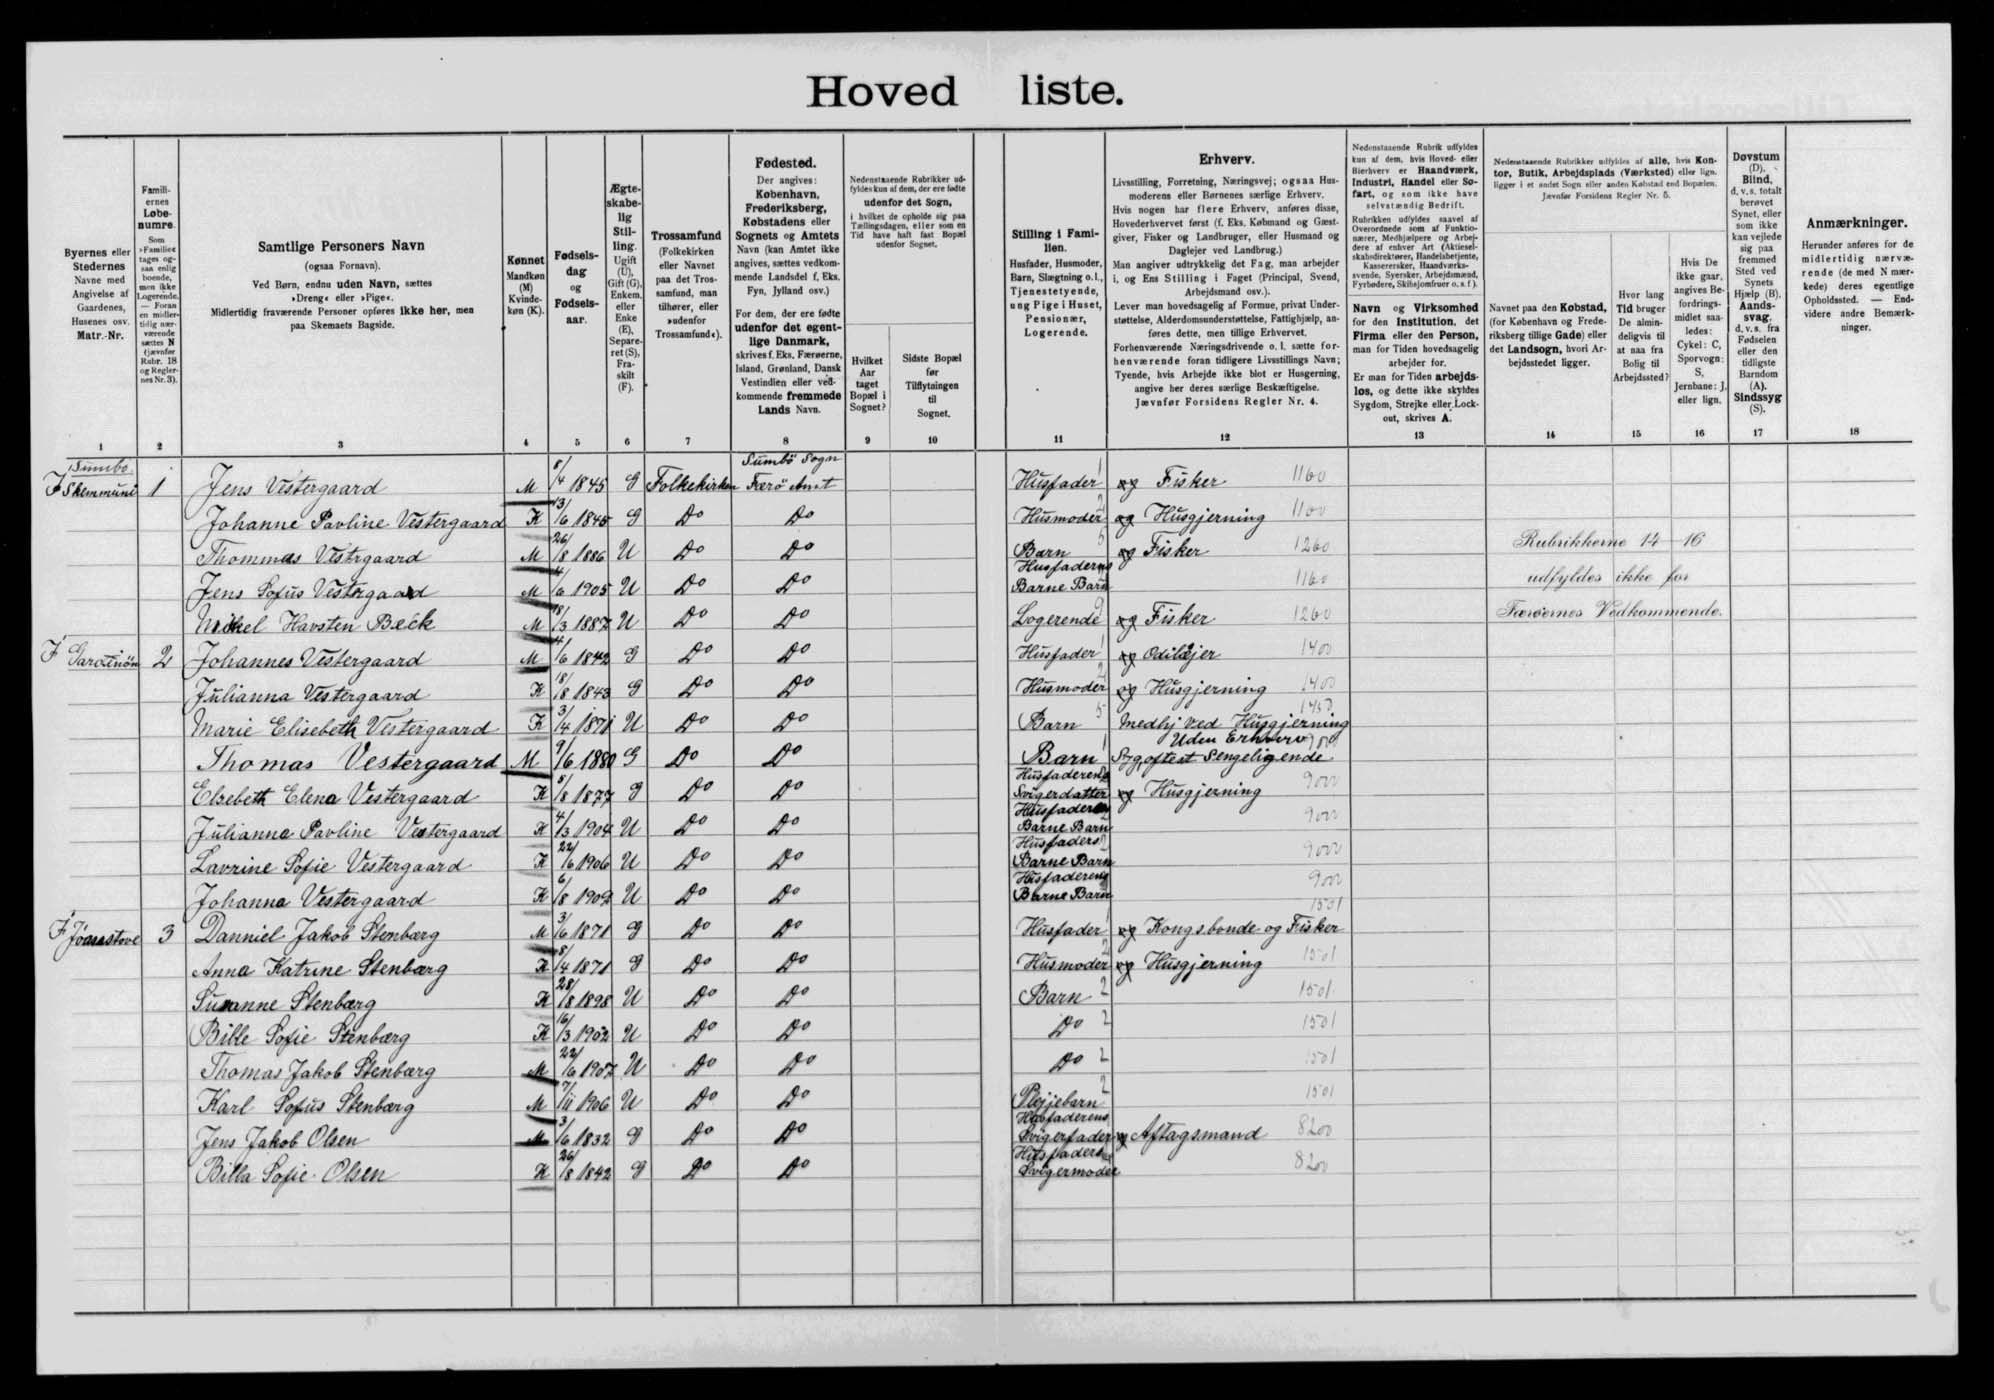 Hoved liste.
Byernes eller Stedernes Navne med Angivelse af Gaardenes, Husenes osv. Matr.-Nr.
Famili-ernes Løbe-numre.
Som »Familie« tages og-saa enlig boende, men ikke Logerende. — Foran en midler-tidig nær-værende sættes N (jævnfør Rubr. 18 og Regler-nes Nr. 3).
Samtlige Personers Navn
(ogsaa Fornavn).
Ved Børn, endnu uden Navn, sættes
»Dreng« eller »Pige«.
Midlertidig fraværende Personer opføres ikke her, men
paa Skemaets Bagside.
Kønnet
Mandkøn (M) Kvinde-køn (K).
Fødsels-dag og Fødsels-aar.
Ægte-skabe-lig Stil-ling.
Ugift (U), Gift (G), Enkem. eller Enke (E), Separe-ret (S), Fra-skilt (F).
Trossamfund
(Folkekirken eller Navnet paa det Tros-samfund, man tilhører, eller »udenfor Trossamfund«).
Fødested.
Der angives:
København, Frederiksberg, Købstadens eller Sognets og Amtets Navn (kan Amtet ikke angives, sættes vedkom-mende Landsdel f. Eks. Fyn, Jylland osv.)
For dem, der ere fødte udenfor det egent-lige Danmark, skrives f. Eks. Færøerne, Island, Grønland, Dansk Vestindien eller ved-kommende fremmede Lands Navn.
Nedenstaaende Rubrikker ud-fyldes kun af dem, der ere fødte udenfor det Sogn, i hvilket de opholde sig paa Tællingsdagen, eller som en Tid have haft fast Bopæl udenfor Sognet.
Hvilket Aar taget Bopæl i Sognet?
Sidste Bopæl før Tilflytningen til Sognet.
Stilling i Fami-lien.
Husfader, Husmoder, Barn, Slægtning o. l., Tjenestetyende, ung Pige i Huset, Pensionær, Logerende.
Erhverv.
Livsstilling, Forretning, Næringsvej; ogsaa Hus-moderens eller Børnenes særlige Erhverv.
Hvis nogen har flere Erhverv, anføres disse, Hovederhvervet først (f. Eks. Købmand og Gæst-giver, Fisker og Landbruger, eller Husmand og Daglejer ved Landbrug.)
Man angiver udtrykkelig det Fag, man arbejder i, og Ens Stilling i Faget (Principal, Svend, Arbejdsmand osv.).
Lever man hovedsagelig af Formue, privat Under-støttelse, Alderdomsunderstøttelse, Fattighjælp, an-føres dette, men tillige Erhvervet.
Forhenværende Næringsdrivende o. l. sætte for-henværende foran tidligere Livsstillings Navn; Tyende, hvis Arbejde ikke blot er Husgerning, angive her deres særlige Beskæftigelse.
Jævnfør Forsidens Regler Nr. 4.
Nedenstaaende Rubrik udfyldes kun af dem, hvis Hoved- eller Bierhverv er Haandværk, Industri, Handel eller Sø-fart, og som ikke have selvstændig Bedrift.
Rubrikken udfyldes saavel af Overordnede som af Funktio-nærer, Medhjælpere og Arbej-dere af enhver Art (Aktiesel-skabsdirektører, Handelsbetjente, Kasserersker, Haandværks-svende, Syersker, Arbejdsmænd, Fyrbødere, Skibsjomfruer o. s. f.).
Navn og Virksomhed for den Institution, det Firma eller den Person, man for Tiden hovedsagelig arbejder for.
Er man for Tiden arbejds-løs, og dette ikke skyldes Sygdom, Strejke eller Lock-out, skrives A.
Nedenstaaende Rubrikker udfyldes af alle, hvis Kon-tor, Butik, Arbejdsplads (Værksted) eller lign. ligger i et andet Sogn eller anden Købstad end Bopælen.
Jævnfør Forsidens Regler Nr. 5.
Navnet paa den Købstad, (for København og Frede-riksberg tillige Gade) eller det Landsogn, hvori Ar-bejdsstedet ligger.
Hvor lang Tid bruger De almin-deligvis til at naa fra Bolig til Arbejdssted?
Hvis De ikke gaar, angives Be-fordrings-midlet saa-ledes: Cykel: C, Sporvogn: S, Jernbane: J, eller lign.
Døvstum (D). Blind, d. v. s. totalt berøvet Synet, eller som ikke kan vejlede sig paa fremmed Sted ved Synets Hjælp (B). Aands-svag, d. v. s. fra Fødselen eller den tidligste Barndom (A). Sindssyg (S).
Anmærkninger.
Herunder anføres for de midlertidig nærvæ-rende (de med N mær-kede) deres egentlige Opholdssted. — End-videre andre Bemærk-ninger.
1 2 3 4 5 6 7 8 9 10 11 12 13 14 15 16 17 18
Sumbø Sumbö Sogn
I Skemmuni 1 Jens Vestergaard M 8/4 1845 G Folkekirken Færö Amt Husfader 1 og Fisker 1160
Johanne Pavline Vestergaard K 13/6 1845 G Do Do Husmoder 2 og Husgjerning 1160
Thommas Vestrgaard M 26/8 1886 U Do Do Barn 5 og Fisker 1260 Rubrikkerne 14-16
Jens Sofus Vestergaard M 4/6 1905 U Do Do Husfaderns Barne Barn 1160 udfyldes ikke for
Mikkel Havsten Bæck M 18/3 1887 U Do Do Logerende 9 og Fisker 1260 Færöernes Vedkommende.
I 2 Johannes Vestergaard M 4/6 1842 G Do Do Husfader 1 og Odilejer 1400
Julianna Vestergaard K 18/8 1843 G Do Do Husmoder 2 og Husgjerning 1400
Marie Elisebeth Vestergaard K 3/4 1871 U Do Do Barn 5 Medhj ved Husgjerning 1450
Thomas Vestergaard M 9/6 1880 G Do Do Barn 1 Uden Erhverv 9000 Syg, oftest Sengeligende.
Elsebeth Elena Vestergaard K 8/8 1877 G Do Do Husfaderens Svigerdatter og Husgjerning 9000
Julianna Pavline Vestergaard K 4/3 1904 U Do Do Husfaderens Barne Barn 9000
Lavrine Sofie Vestergaard K 22/6 1906 U Do Do Husfaders Barne Barn 9000
Johanna Vestergaard K 6/8 1909 U Do Do Husfaderens Barne Barn 9000
I 3 Danniel Jakob Stenbærg M 3/6 1871 G Do Do Husfader 1 og Kongsbonde og Fisker 1501
Anna Katrine Stenbærg K 8/4 1871 G Do Do Husmoder 2 og Husgjerning 1501
Susanne Stenbærg K 28/8 1898 U Do Do Barn 2 1501
Bille Sofie Stenbærg K 16/3 1902 U Do Do Do 2 1501
Thomas Jakob Stenbærg M 22/6 1907 U Do Do Do 2 1501
Karl Sofus Stenbærg M 7/11 1906 U Do Do Plejjebarn 2 1501
Jens Jakob Olsen M 3/6 1832 G Do Do Husfaderens Svigerfader og Aftagsmand 8200
Billa Sofie Olsen K 26/8 1842 G Do Do Husfaders Svigermoder 8200